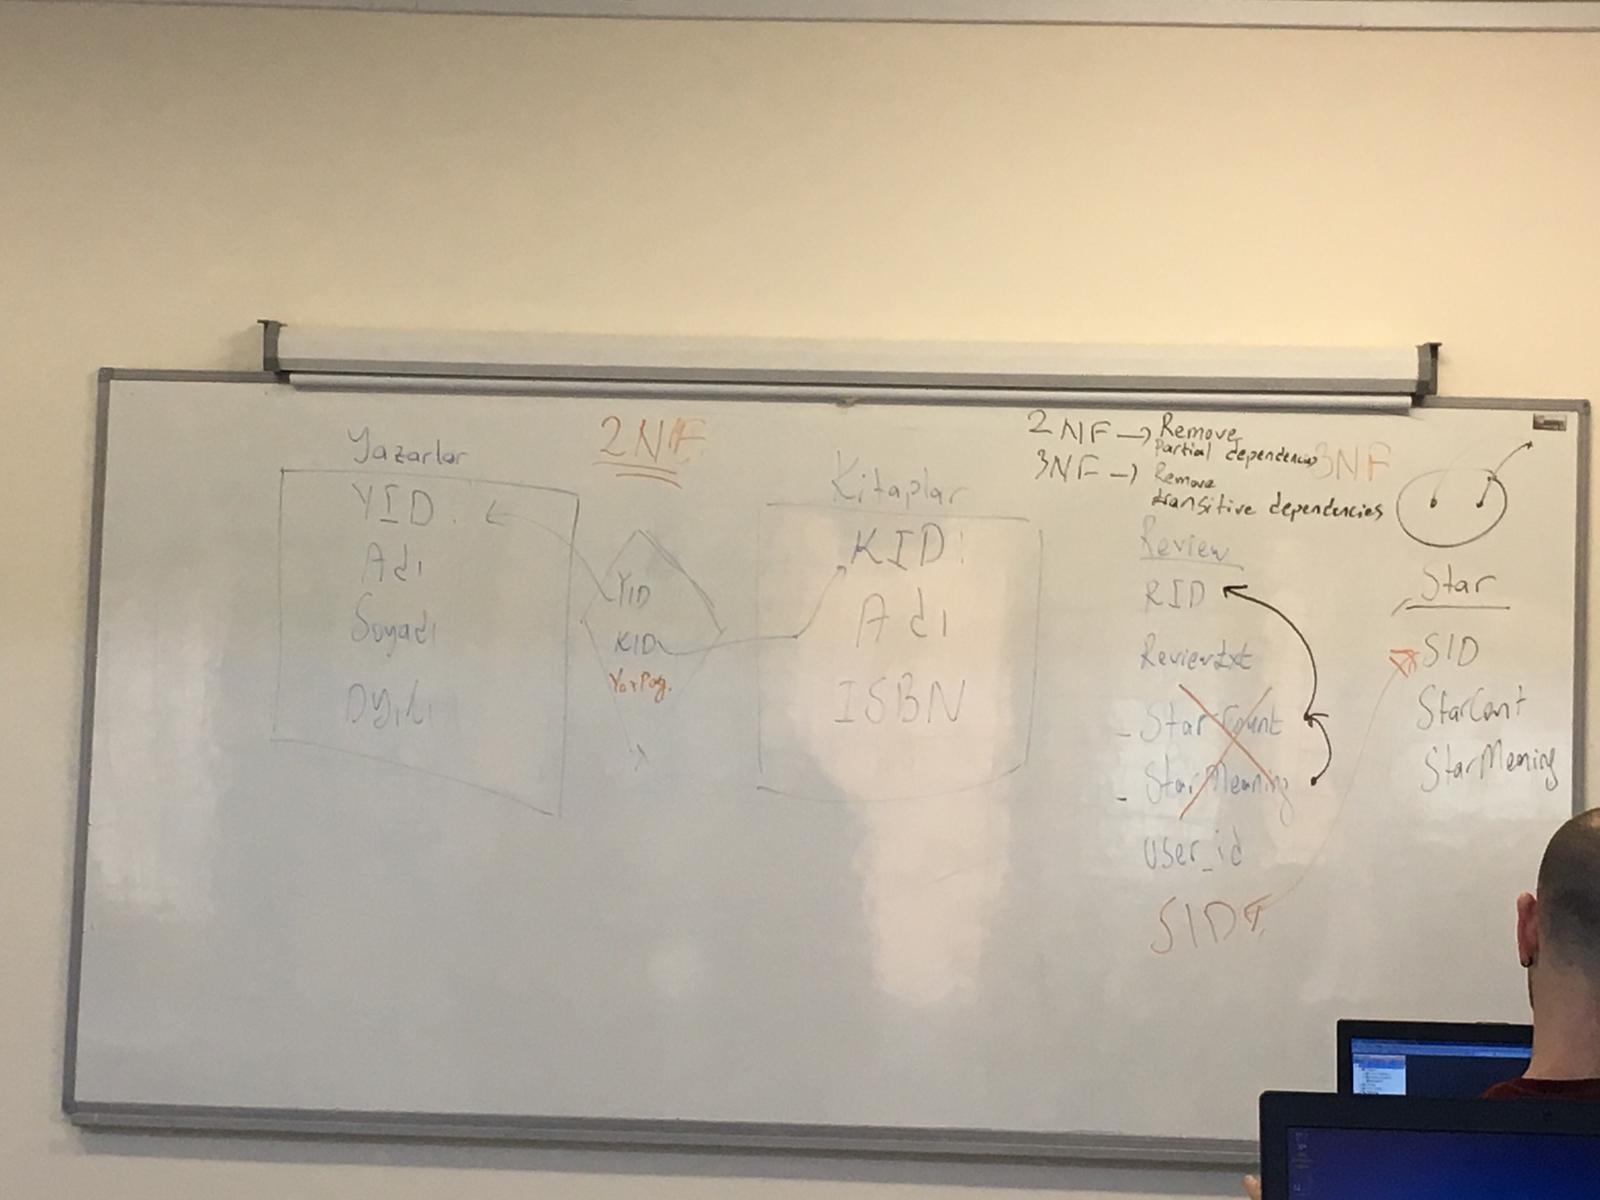 Yazarlar
YID
Adı
Soyadı
2NF
YID
KID
Kitaplar
KID
Adı
ISBN
2NF → Remove
Partial dependencies
3NF → Remove
transitive dependencies
3NF
Review
RID
Reviewtxt
- StarCount
- StarMeaning
user_id
SID
Star
SID
StarCont
StarMeaning